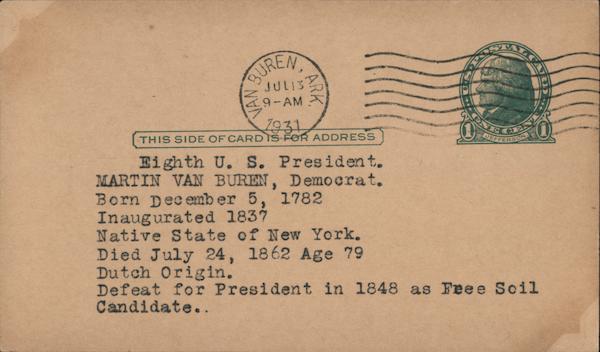 VAN BUREN, ARK.
JUL 13
9-AM
1931
1 JEFFERSON 1
THIS SIDE OF CARD IS FOR ADDRESS
Eighth U. S. President.
MARTIN VAN BUREN, Democrat.
Born December 5, 1782
Inaugurated 1837
Native State of New York.
Died July 24, 1862 Age 79
Dutch Origin.
Defeat for President in 1848 as Free Soil
Candidate..